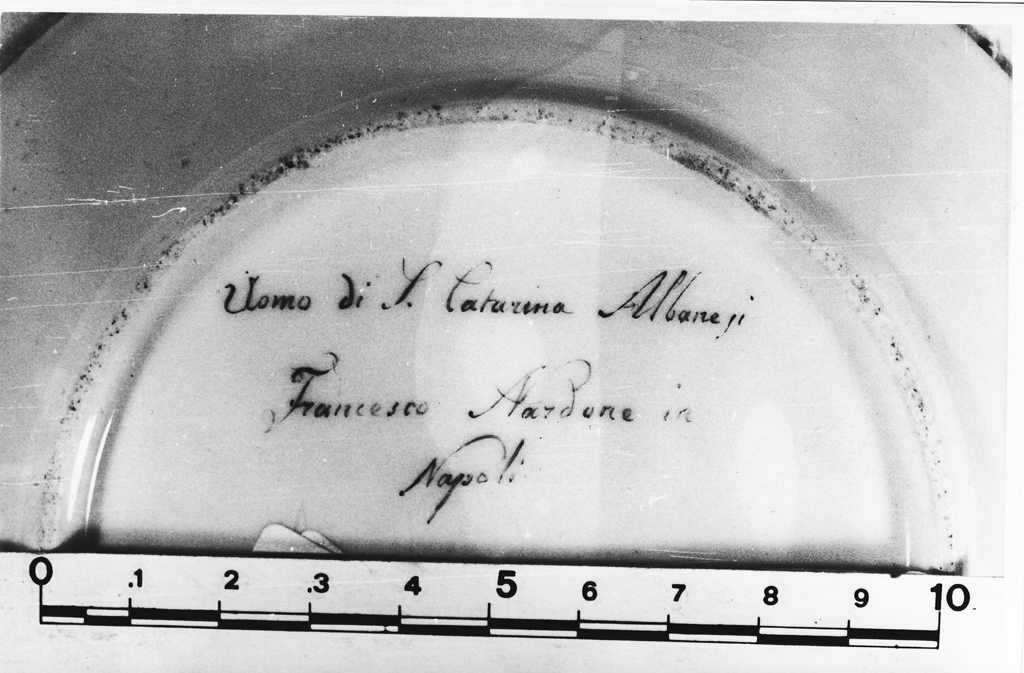 Uomo di S. Catarina Albanesi
Francesco Nardone in
Napoli
0 .1 2 .3 4 5 6 7 8 9 10